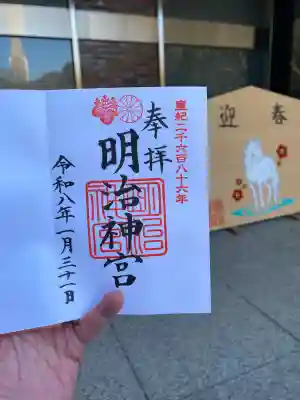 皇紀二千六百八十六年
奉拝
明治神宮
令和八年一月三十一日
迎春